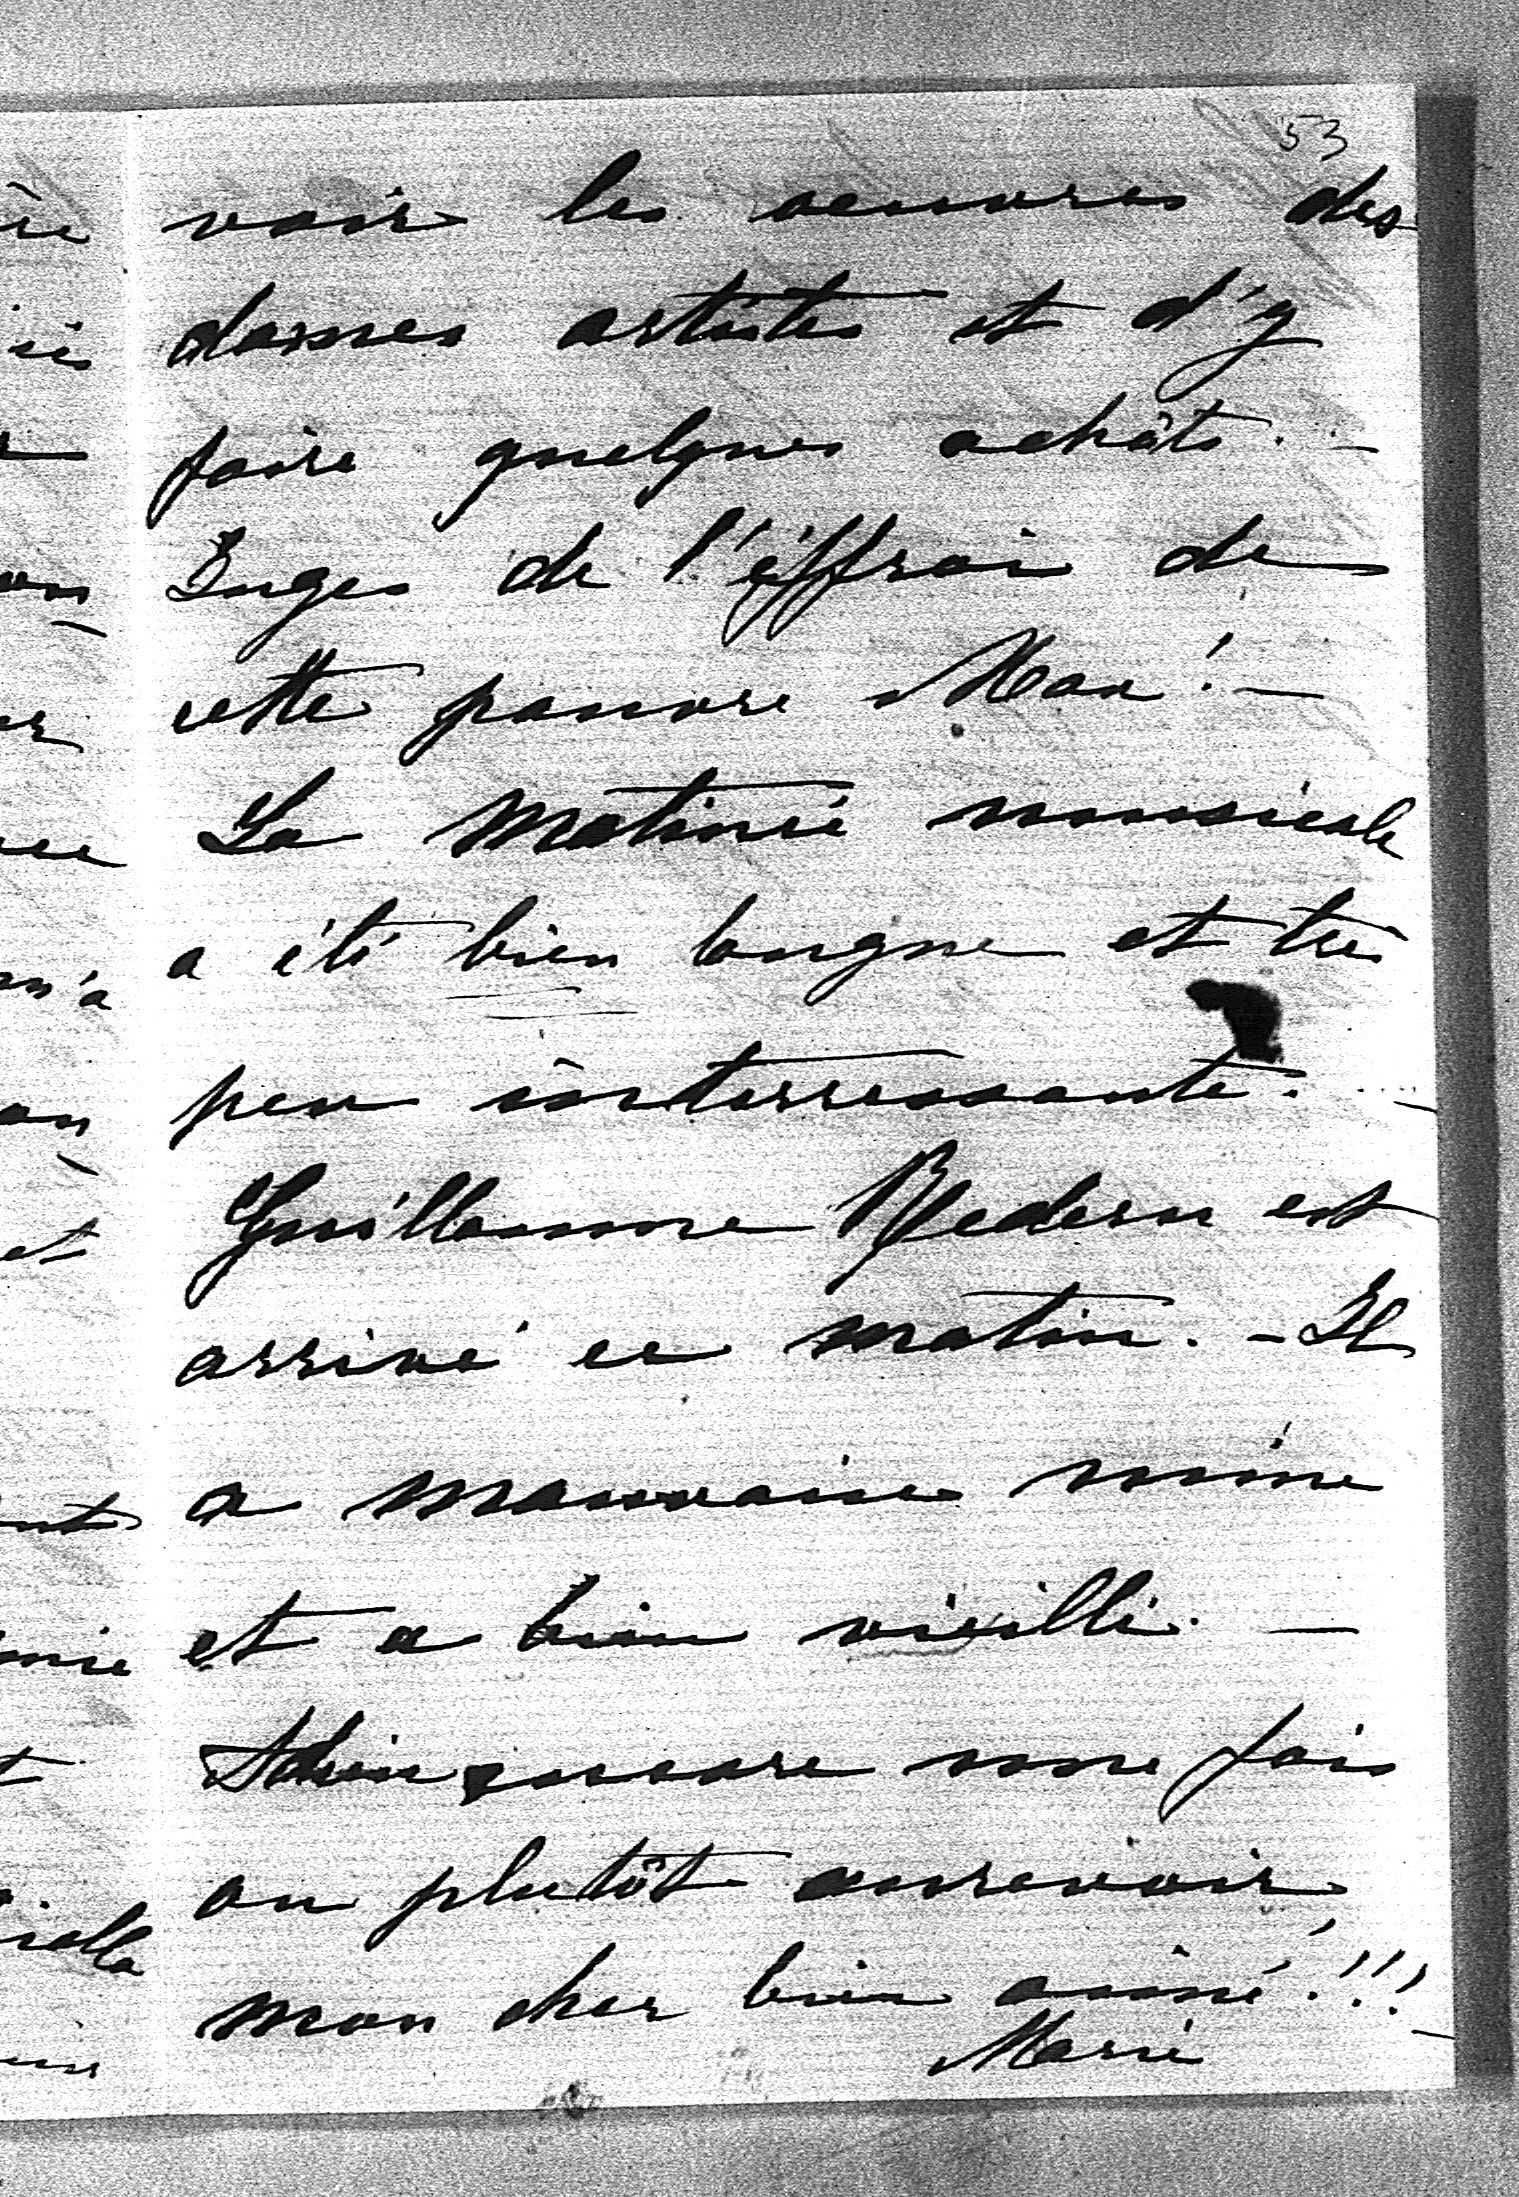 53
voir les oeuvres des
dames artistes et d'y
faire quelques achâts. -
Juges de l'éffroi de
cette pauvre Max! -
La Matinée musicale
a été bien longue et très
peu intérressante. -
Guillaume Redern est
arrivé ce matin. - Il
a mauvaise mine
et a bien vieilli. -
Adieu encore une fois
ou plutôt aurevoir
mon cher bien aimé!!! -
Marie